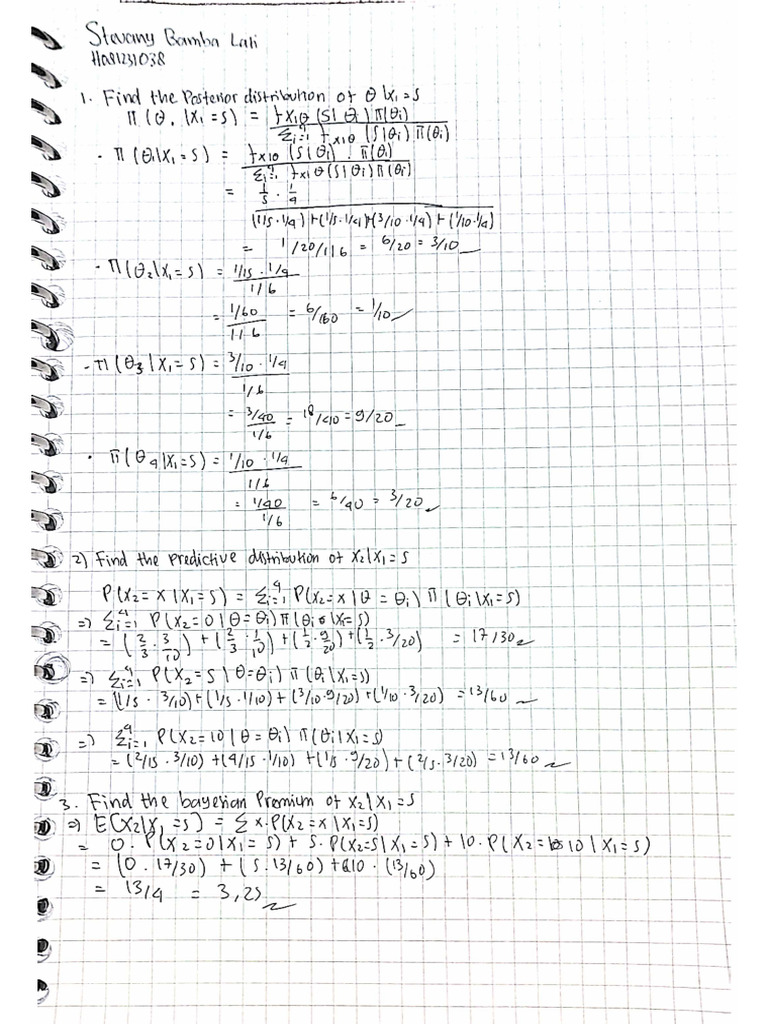 Stevany Bamba Lali
H081231038
1. Find the Posterior distribution of θ|X₁=5
π(θ, |X₁=5) = fx|θ (5|θ) π(θi) / Σᵢ₌₁⁴ fx|θ (5|θi) π(θi)
• π(θ₁|X₁=5) = fx|θ (5|θi) . π(θi) / Σᵢ₌₁⁴ fx|θ (5|θi) π(θi)
= 1/5 . 1/4
(1/5 . 1/4) + (1/5 . 1/4) + (3/10 . 1/4) + (1/10 . 1/4)
= 1/20/1/6 = 6/20 = 3/10
• π(θ₂|X₁=5) = 1/15 . 1/4
1/6
= 1/60 / 1/6 = 6/60 = 1/10
- π(θ₃|X₁=5) = 3/10 . 1/4
1/6
= 3/40 / 1/6 = 18/40 = 9/20
• π(θ₄|X₁=5) = 1/10 . 1/4
1/6
= 1/40 / 1/6 = 6/40 = 3/20
2) Find the predictive distribution of X₂|X₁=5
P(X₂=x|X₁=5) = Σᵢ₌₁⁴ P(X₂=x|θ=θi) π(θi|X₁=5)
=) Σᵢ₌₁⁴ P(X₂=0|θ=θi) π(θi|X₁=5)
= (2/3 . 3/10) + (2/3 . 1/10) + (1/2 . 9/20) + (1/2 . 3/20) = 17/30
=) Σᵢ₌₁⁴ P(X₂=5|θ=θi) π(θi|X₁=5)
= (1/5 . 3/10) + (1/5 . 1/10) + (3/10 . 9/20) + (1/10 . 3/20) = 13/60
=) Σᵢ₌₁⁴ P(X₂=10|θ=θi) π(θi|X₁=5)
= (2/15 . 3/10) + (4/15 . 1/10) + (1/5 . 9/20) + (2/5 . 3/20) = 13/60
3. Find the bayesian Premium of X₂|X₁=5
=) E(X₂|X₁=5) = Σ x.P(X₂=x|X₁=5)
= 0 . P(X₂=0|X₁=5) + 5 . P(X₂=5|X₁=5) + 10 . P(X₂=10|X₁=5)
= (0 . 17/30) + (5 . 13/60) + 10 . (13/60)
= 13/4 = 3,25